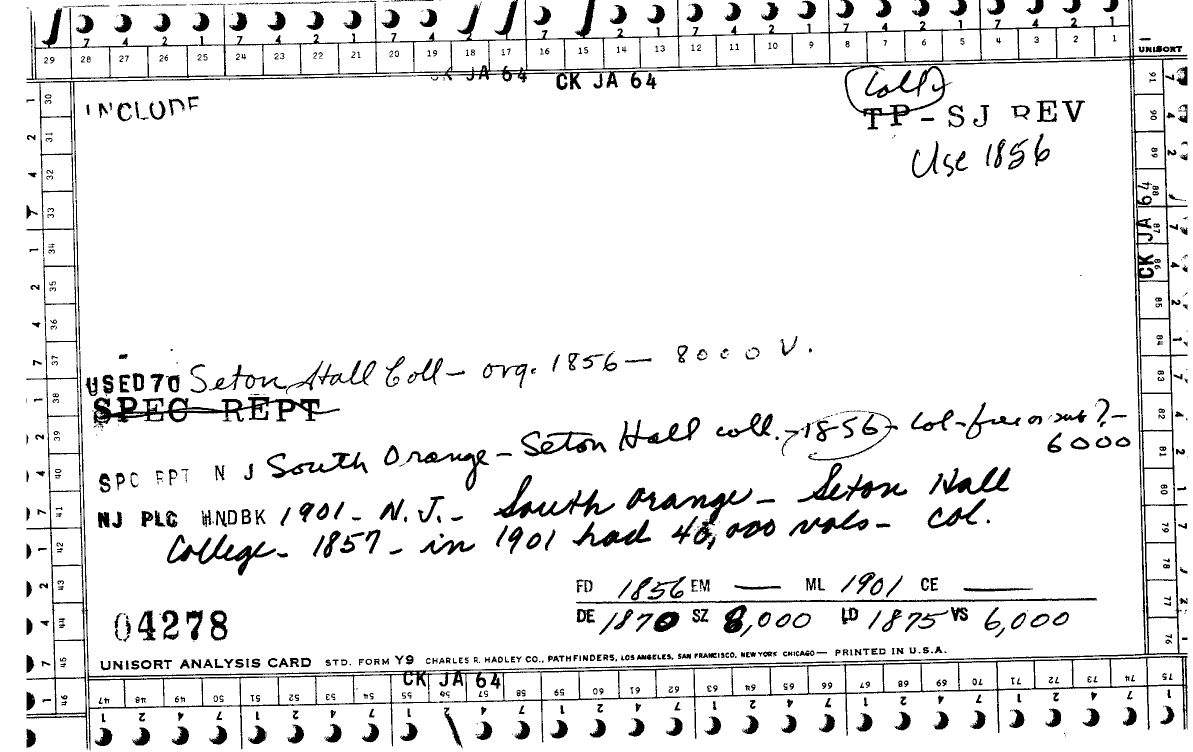 7 4 2 1 7 4 2 1 7 4 2 1 7 4 2 1 7 4 2 1
29 28 27 26 25 24 23 22 21 20 19 18 17 16 15 14 13 12 11 10 9 8 7 6 5 4 3 2 1
UNISORT
CK JA 64 CK JA 64
INCLUDE
Coll
TP-SJ REV
Use 1856
CK JA 64
USED 70 Seton Hall Coll - org. 1856 - 8000 V.
SPEC REPT
SPC RPT N J South Orange - Seton Hall coll. - 1856 - Col - free or sub? -
6000
NJ PLC HNDBK 1901 - N.J. - South Orange - Seton Hall
College - 1857 - in 1901 had 40,000 vols - Col.
FD 1856 EM — ML 1901 CE —
04278
DE 1870 SZ 8,000 LD 1875 VS 6,000
UNISORT ANALYSIS CARD STD. FORM Y9 CHARLES R. HADLEY CO., PATHFINDERS, LOS ANGELES, SAN FRANCISCO, NEW YORK CHICAGO — PRINTED IN U.S.A.
CK JA 64
47 48 49 50 51 52 53 54 55 56 57 58 59 60 61 62 63 64 65 66 67 68 69 70 71 72 73 74 75